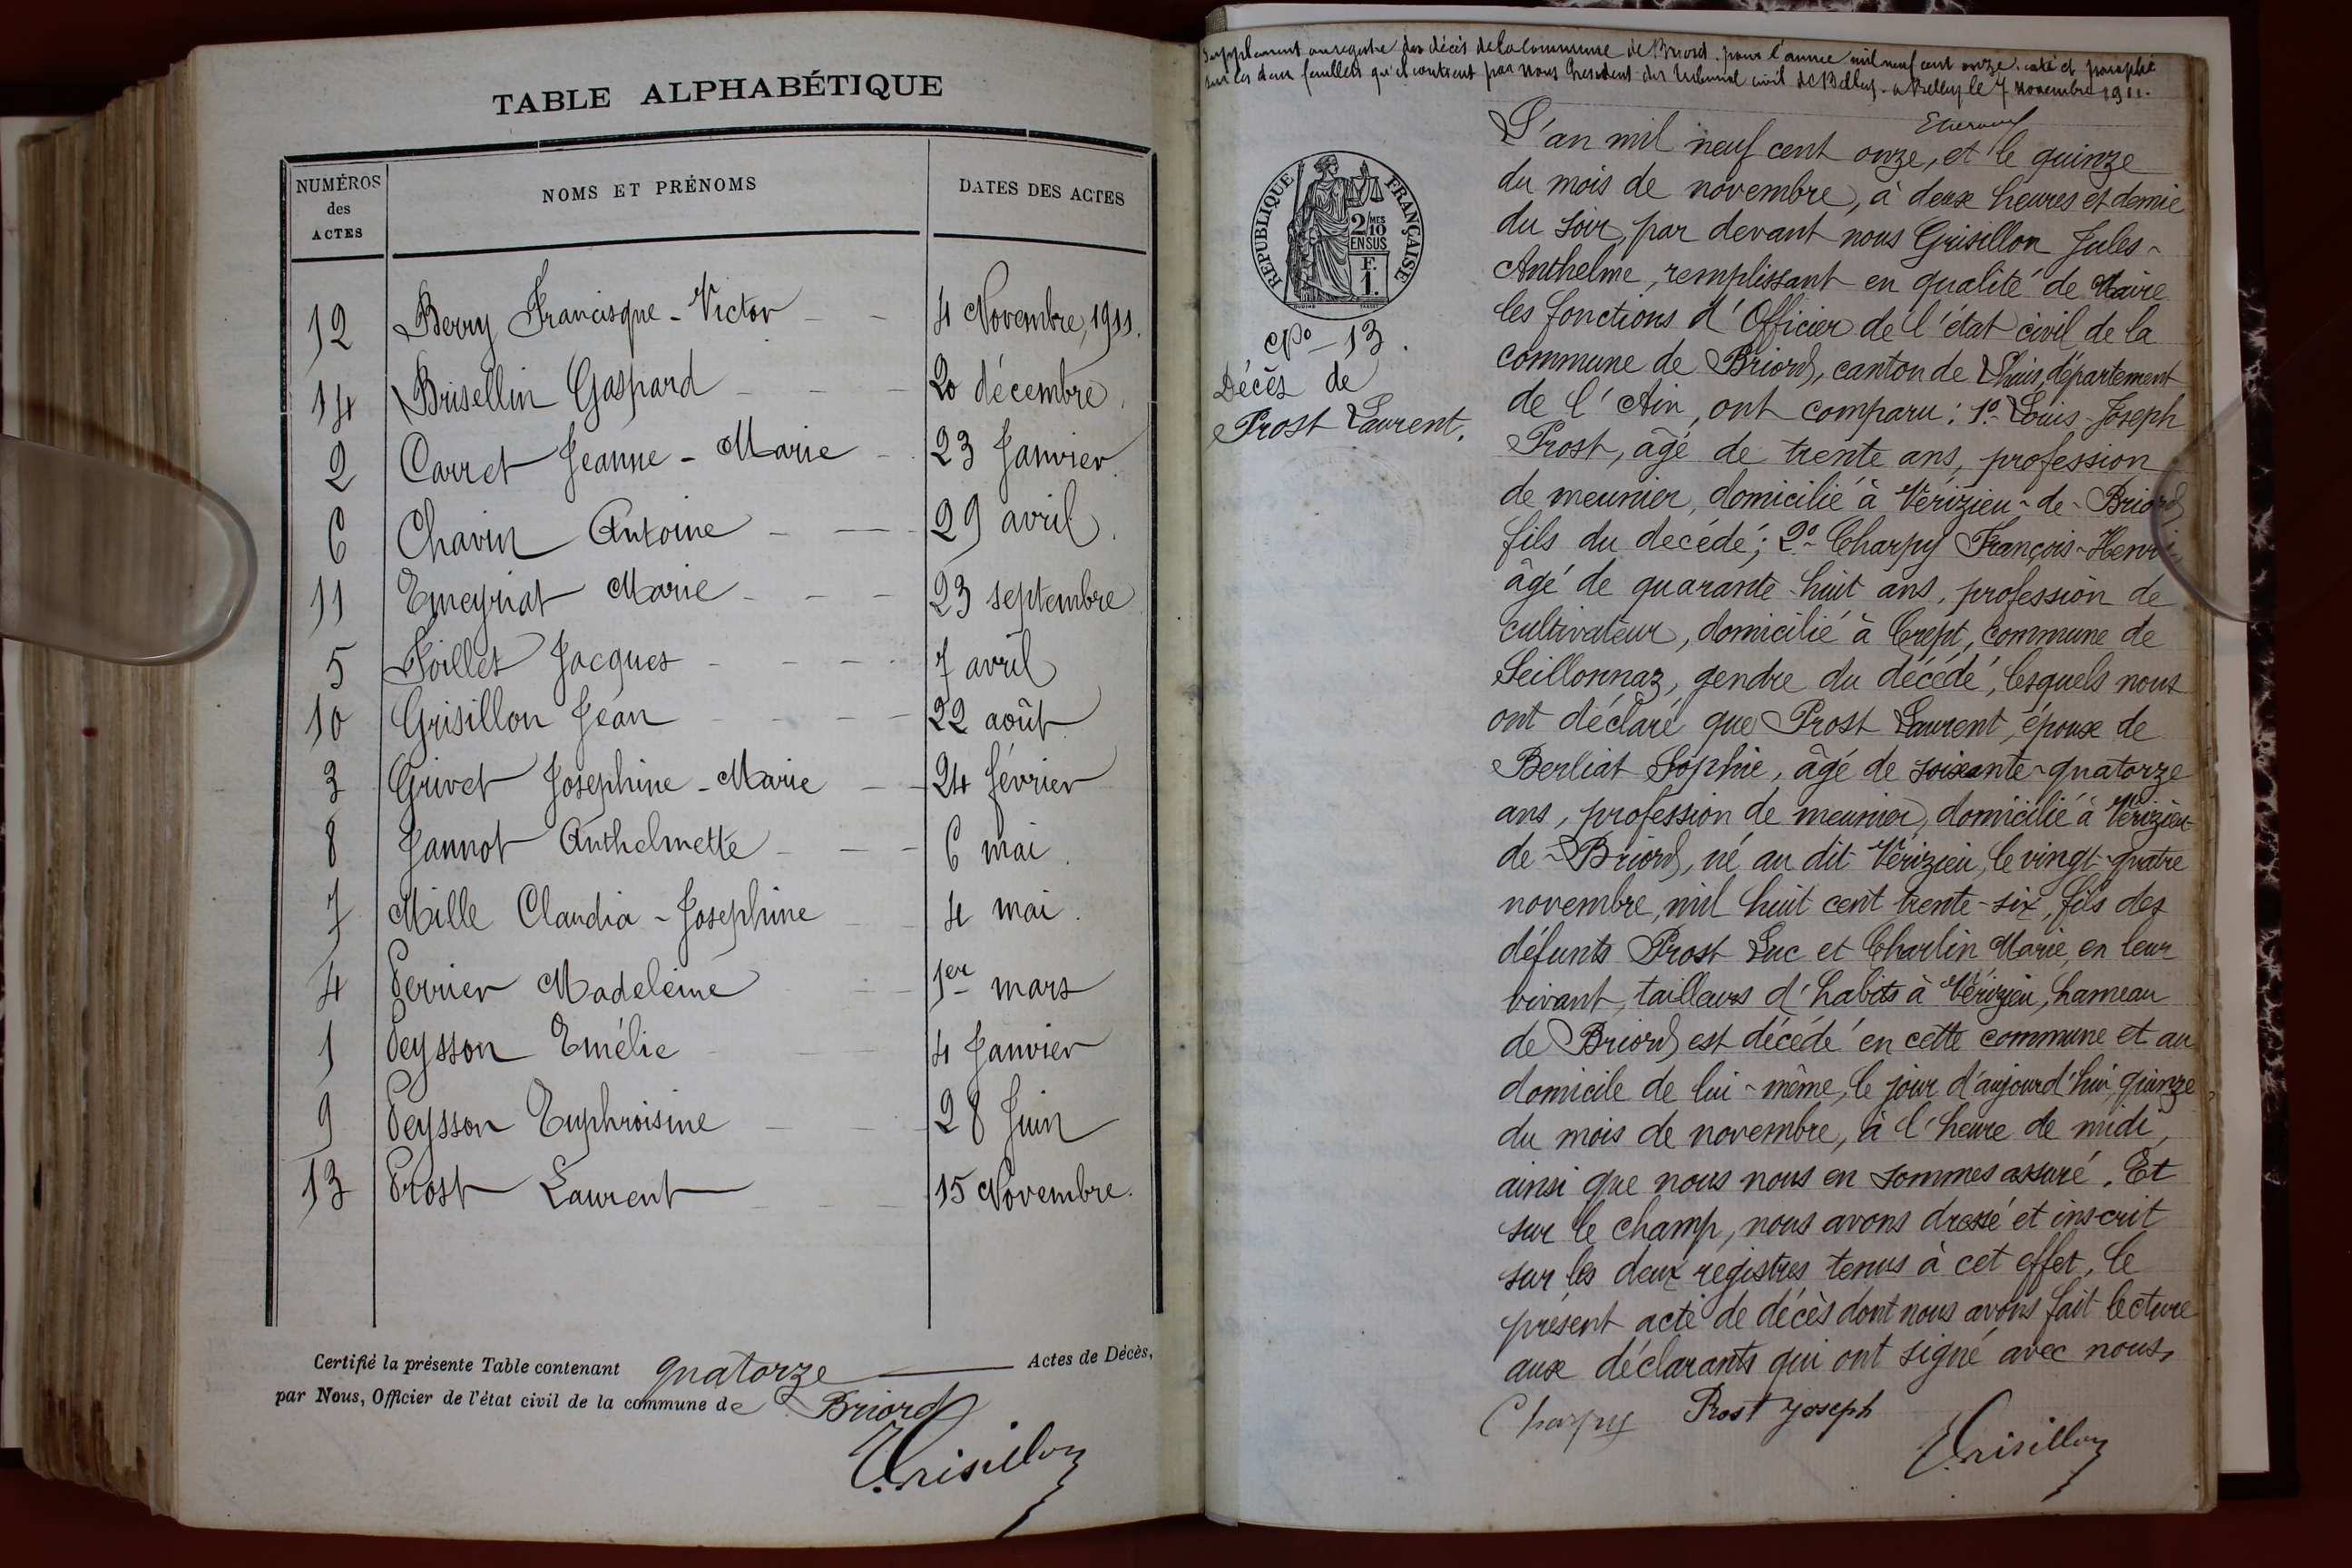 TABLE ALPHABÉTIQUE
NUMÉROS des ACTES NOMS ET PRÉNOMS DATES DES ACTES
12 Berry Francisque - Victor 4 Novembre, 1911.
14 Brisellin Gaspard 20 décembre
2 Carret Jeanne - Marie 23 Janvier
6 Chavin Antoine 29 avril
11 Emeyriat Marie 23 septembre
5 Foillet Jacques 7 avril
10 Grisillon Jean 22 août
3 Grivet Joséphine - Marie 24 février
8 Jannot Anthelmette 6 mai
7 Mille Claudia - Josephine 4 mai
4 Perrier Madeleine 1er mars
1 Peysson Emélie 4 Janvier
9 Peysson Euphroisine 28 Juin
13 Prost Laurent 15 Novembre.
Certifié la présente Table contenant quatorze Actes de Décès,
par Nous, Officier de l'état civil de la commune de Briord
Grisillon
Supplément au registre des décès de la Commune de Briord. pour l'année mil neuf cent onze. coté et paraphé
sur les deux feuillets qu'il contient par nous Président du Tribunal civil de Belley. a Belley le 7 Novembre 1911.
RÉPUBLIQUE FRANÇAISE
2/10 MES
EN SUS
F.
1.
No - 13.
Décès de
Prost Laurent.
L'an mil neuf cent onze, et le quinze
du mois de novembre, à deux heures et demie
du soir, par devant nous Grisillon Jules-
Anthelme, remplissant en qualité de Maire
les fonctions d'Officier de l'état civil de la
commune de Briord, canton de Lhuis, département
de l'Ain, ont comparu : 1º- Louis-Joseph
Prost, âgé de trente ans, profession
de meunier, domicilié à Vérizieu-de-Briord
fils du décédé; 2º- Charpy François-Henri
âgé de quarante-huit ans, profession de
cultivateur, domicilié à Crept, commune de
Seillonnaz, gendre du décédé, lesquels nous
ont déclaré que Prost Laurent, époux de
Berliat Sophie, âgé de soixante-quatorze
ans, profession de meunier, domicilié à Vérizieu
de-Briord, né au dit Vérizieu, le vingt-quatre
novembre, mil huit cent trente-six, fils des
défunts Prost Luc et Charlin Marie, en leur
vivant, tailleurs d'habits à Vérizieu, hameau
de Briord, est décédé en cette commune et au
domicile de lui-même, le jour d'aujourd'hui, quinze
du mois de novembre, à l'heure de midi,
ainsi que nous nous en sommes assuré. Et
sur le champ, nous avons dressé et inscrit
sur les deux registres tenus à cet effet, le
présent acte de décès dont nous avons fait lecture
aux déclarants qui ont signé avec nous.
Charpy Prost Joseph
Grisillon